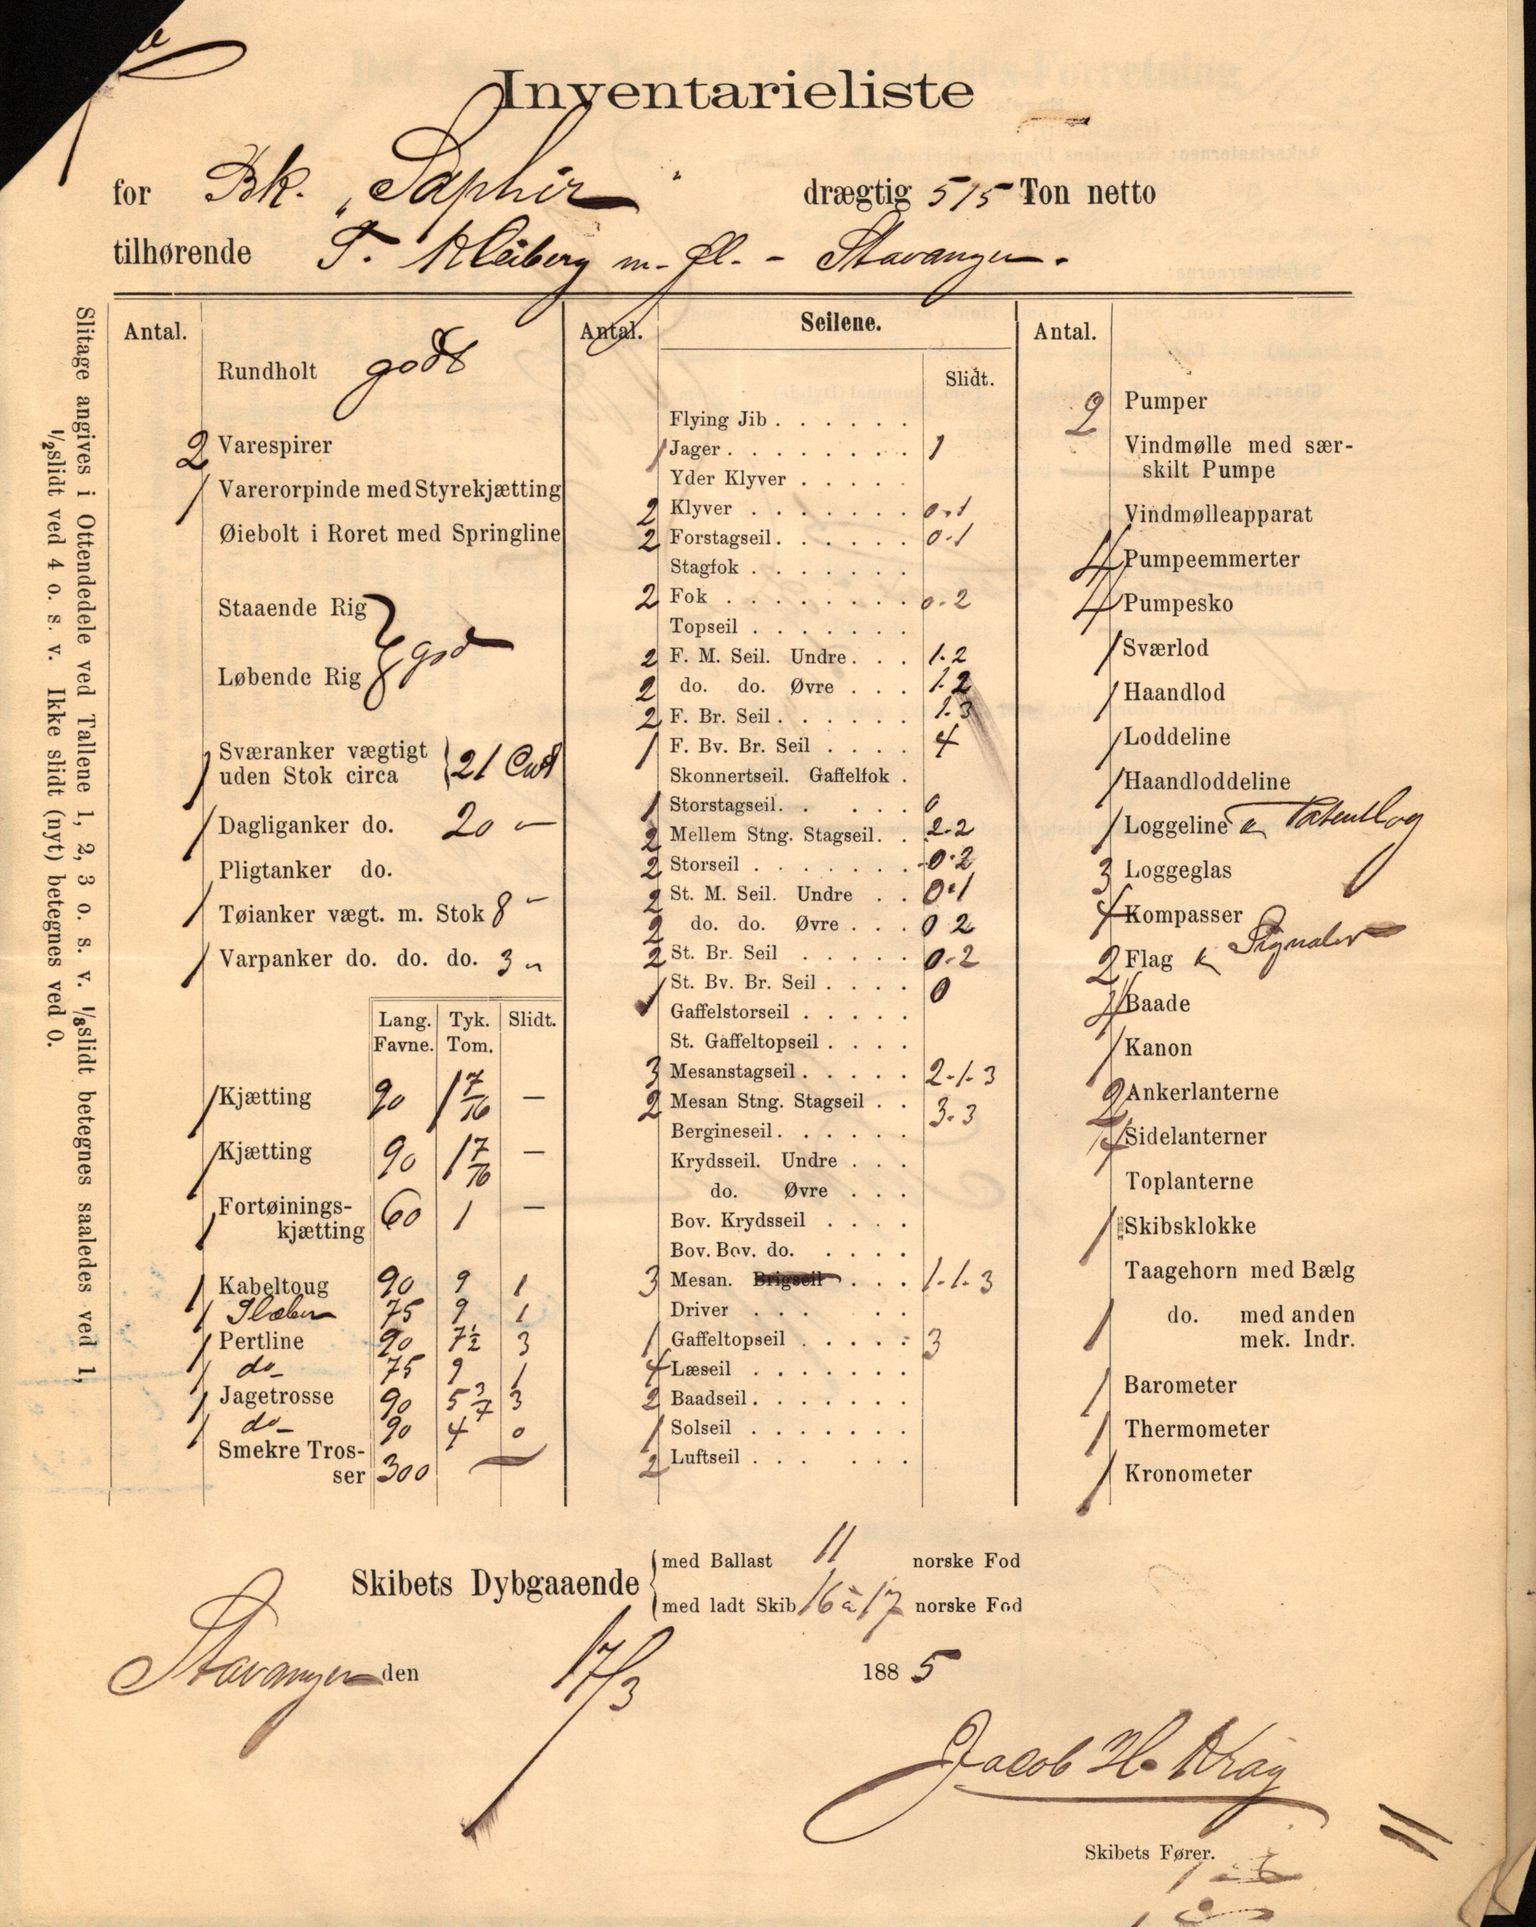 Inventarieliste
for Bk. „Saphir" drægtig 515 Ton netto
tilhørende T. Kleiberg m. fl. - Stavanger.
Slitage angives i Ottendedele ved Tallene 1, 2, 3 o. s. v. 1/8 slidt betegnes saaledes ved 1,
1/2 slidt ved 4 o. s. v. Ikke slidt (nyt) betegnes ved 0.
Antal.
Rundholt godt
2 Varespirer
1 Varerorpinde med Styrekjætting
Øiebolt i Roret med Springline
Staaende Rig
Løbende Rig } god
1 Sværanker vægtigt
uden Stok circa } 21 Cwt
1 Dagliganker do. 20 "
Pligtanker do.
1 Tøianker vægt. m. Stok 8 "
1 Varpanker do. do. do. 3 "
Lang. Tyk. Slidt.
Favne. Tom.
1 Kjætting 90 1 7/16 —
1 Kjætting 90 1 7/16 —
Fortøinings-
1 kjætting 60 1 —
1 Kabeltoug 90 9 1
1 Slæber 75 9 1
1 Pertline 90 7 1/2 3
1 do 75 9 1
1 Jagetrosse 90 5 3
1 do 90 4 0
Smekre Tros-
ser 300 —
Antal. Seilene.
Slidt.
Flying Jib
1 Jager 1
Yder Klyver
2 Klyver 0.1
2 Forstagseil 0-1
Stagfok
2 Fok 0-2
Topseil
2 F. M. Seil. Undre 1.2
2 do. do. Øvre 1.2
2 F. Br. Seil 1.3
1 F. Bv. Br. Seil 4
Skonnertseil. Gaffelfok
1 Storstagseil 0
2 Mellem Stng. Stagseil 2-2
2 Storseil 0.2
2 St. M. Seil. Undre 0.1
2 do. do. Øvre 0 2
2 St. Br. Seil 0-2
1 St. Bv. Br. Seil 0
Gaffelstorseil
St. Gaffeltopseil
3 Mesanstagseil 2-1-3
2 Mesan Stng. Stagseil 3-3
Bergineseil
Krydsseil. Undre
do. Øvre
Bov. Krydsseil
Bov. Bov. do.
3 Mesan. Brigseil 1-1-3
Driver
1 Gaffeltopseil 3
4 Læseil
2 Baadseil
1 Solseil
2 Luftseil
Antal.
2 Pumper
Vindmølle med sær-
skilt Pumpe
Vindmølleapparat
4 Pumpeemmerter
4 Pumpesko
1 Sværlod
1 Haandlod
1 Loddeline
1 Haandloddeline
1 Loggeline & Patentlog
3 Loggeglas
4 Kompasser
2 Flag & Signaler
4 Baade
1 Kanon
2 Ankerlanterne
4 Sidelanterner
Toplanterne
1 Skibsklokke
Taagehorn med Bælg
1 do. med anden
mek. Indr.
1 Barometer
1 Thermometer
1 Kronometer
Skibets Dybgaaende
med Ballast 11 norske Fod
med ladt Skib 16 à 17 norske Fod
Stavanger den 17/3 1885
Jacob H. Krag
Skibets Fører.